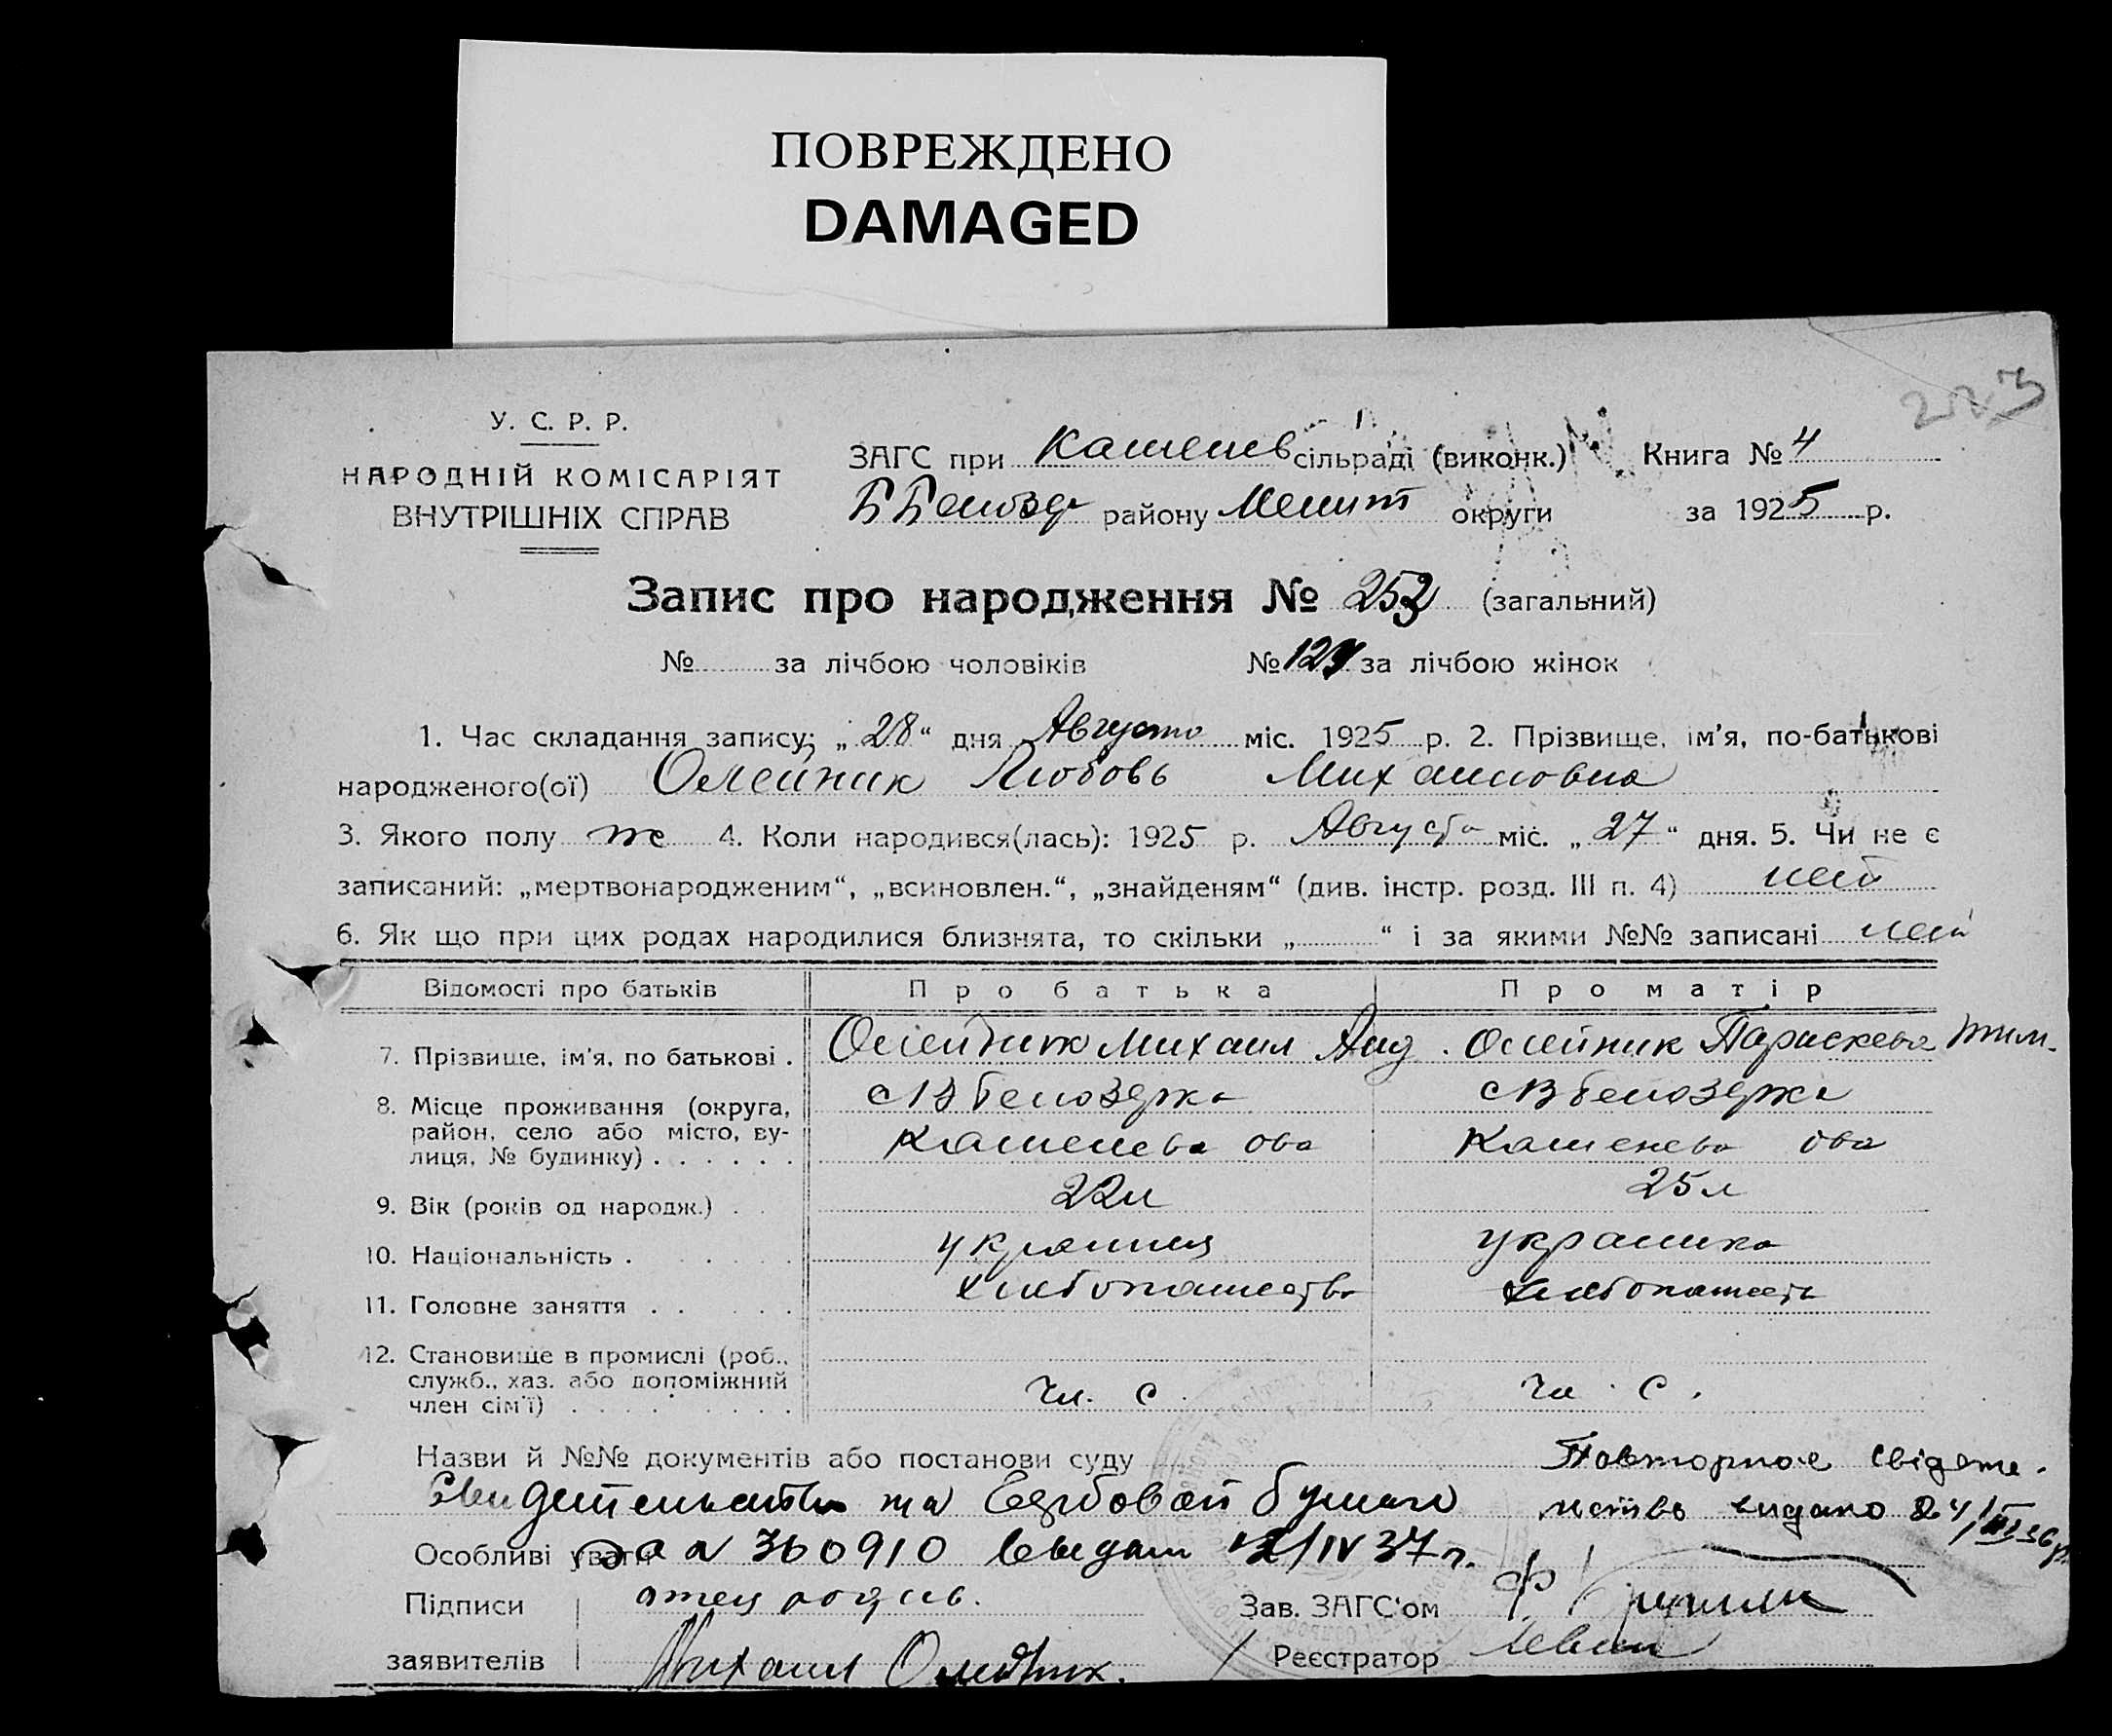 ПОВРЕЖДЕНО
DAMAGED
223
У. С. Р. Р.
НАРОДНІЙ КОМІСАРІЯТ
ВНУТРІШНІХ СПРАВ
ЗАГС при Каменев сільраді (виконк.) Книга № 4
району Мелит округи за 1925 р.
Запис про народження № 252 (загальний)
№ за лічбою чоловіків № за лічбою жінок
1. Час складання запису; „28“ дня Августа міс. 1925 р. 2. Прізвище, ім'я, по-батькові
народженого(ої) Олейник Любовь Михаиловна
3. Якого полу ж 4. Коли народився(лась): 1925 р. Августа міс. „27“ дня. 5. Чи не є
записаний: „мертвонародженим“, „всиновлен.“, „знайденям“ (див. інстр. розд. III п. 4) нет
6. Як що при цих родах народилися близнята, то скільки „ “ і за якими №№ записані нет
Відомості про батьків Про батька Про матір
7. Прізвище, ім'я, по батькові . Олейник Михаил Анд. Олейник Параскева Тим.
8. Місце проживання (округа, район, село або місто, вулиця, № будинку) . . . . . . Белозерка Белозерка
Каменева ова Каменева ова
9. Вік (років од народж.) . . 22л 25л
10. Національність . . . . . . украинец украинка
11. Головне заняття . . . . . хлебопашество хлебопашест
12. Становище в промислі (роб., служб., хаз. або допоміжний член сім'ї) . . . . . . . . . чл. с. чл. с.
Назви й №№ документів або постанови суду Повторное свідете.
Свидетельство на Гербовой бумаге льство видано 24/
Особливі уваги 360910 выдан /IV 37 г.
Підписи отец родив. Зав. ЗАГС'ом
заявителів Михаил Олейник. Реєстратор